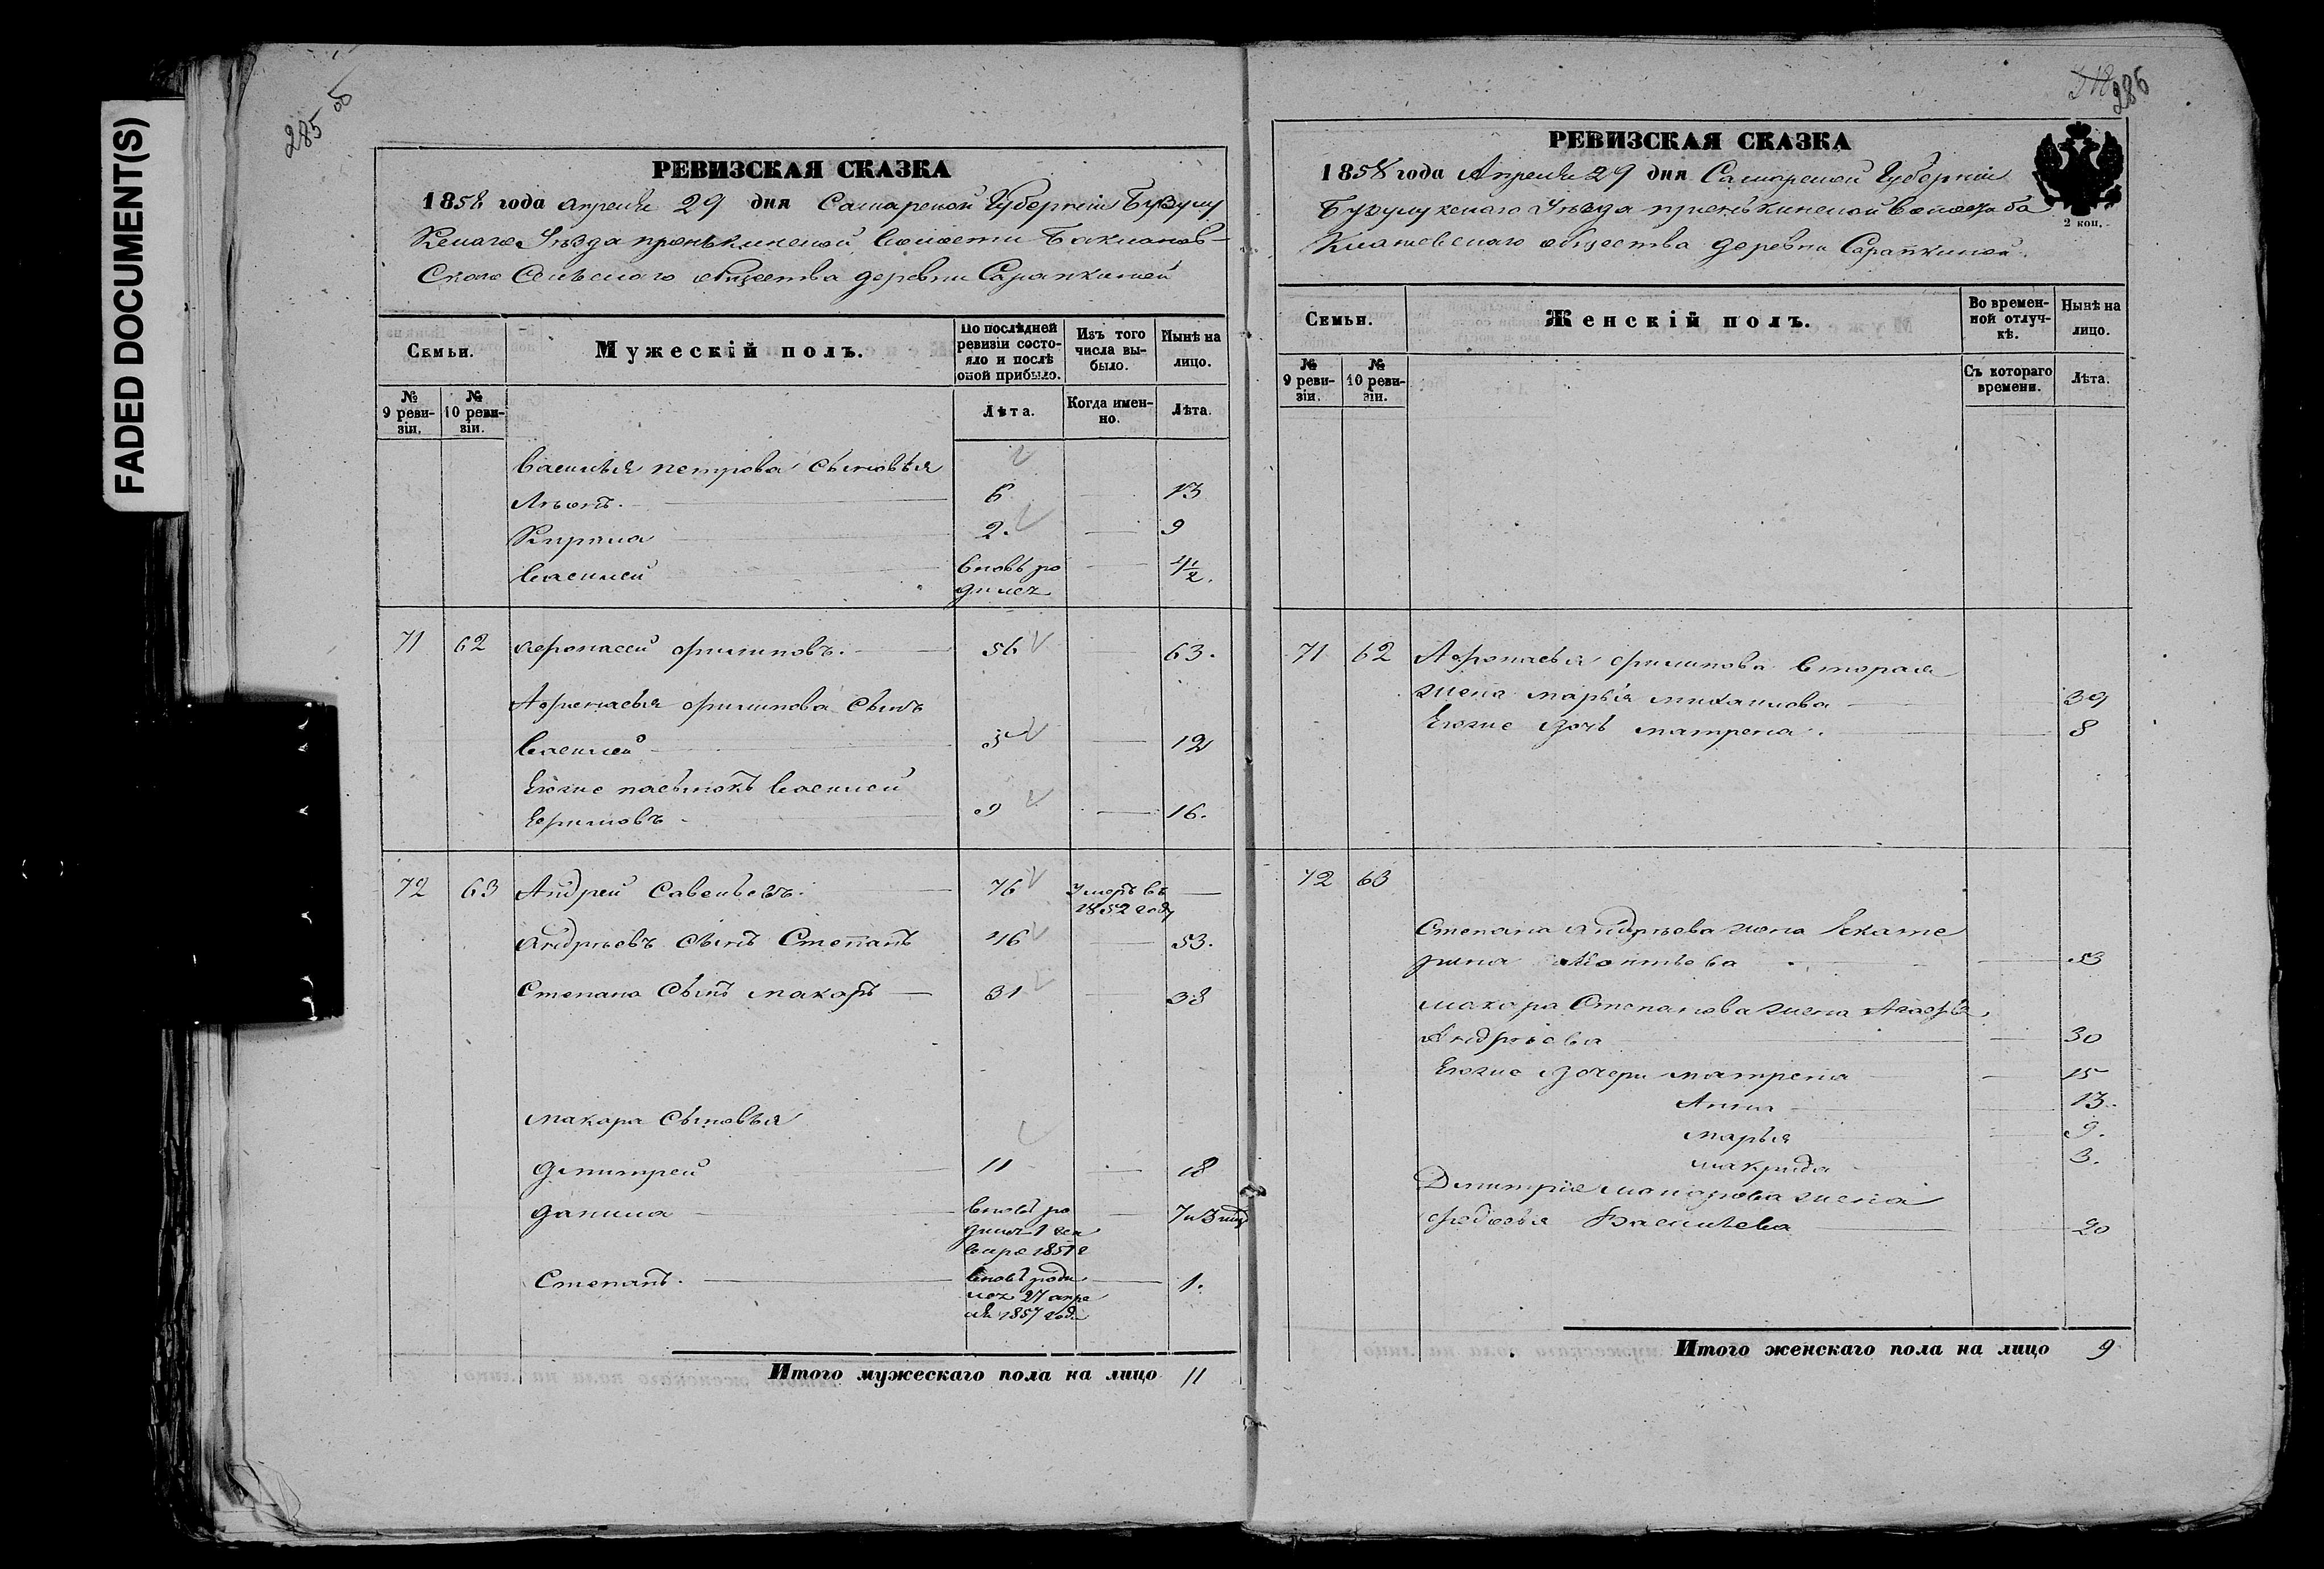 FADED DOCUMENT(S)
285 об
РЕВИЗСКАЯ СКАЗКА
1858 года апреля 29 дня Самарской Губернии Бузулу
кскаго Уѣзда пронькинской волости Баклановъ-
Скаго Сельскаго общества деревни Сарапкиной
Семьи.
Мужескій полъ.
По послѣдней ревизіи состо-
яло и послѣ
оной прибыло.
Изъ того
числа вы-
было.
Нынѣ на
лицо.
№
9 реви-
зіи.
№
10 реви-
зіи.
Лѣта.
Когда имен-
но.
Лѣта.
Василья петрова сыновья
Леонъ. 6 13
Кирила 2. 9
Василей вновь ро
дилсъ 4½.
71 62 Афонасей филиповъ. 56 63.
Афонасья филипова сынъ
Василей 5 12
Евоже пасынокъ Василей
Ефимовъ 9 16.
72 63 Андрей Савельевъ. 76 Умеръ въ
1852 году
Андрѣевъ сынъ Степанъ 46 53.
Степана сынъ макаръ 31 38
макара сыновья
дмитрей 11 18
данила вновь ро
дилсъ 1 ген
варе 1851 г 7 и 3 мцъ
Степанъ. вновь роди
лсъ 27 апре
ля 1857 года 1.
Итого мужескаго пола на лицо 11
286
РЕВИЗСКАЯ СКАЗКА
1858 года Апреля 29 дня Самарской Губернии
Бузулукскаго Уѣзда пронькинской волости Ба
клановскаго общества деревни Сарапкиной.
2 коп.
Семьи.
Женскій полъ.
Во времен-
ной отлуч-
кѣ.
Нынѣ на
лицо.
№
9 реви-
зіи.
№
10 реви-
зіи.
Съ котораго
времени.
Лѣта.
71 62 Афонасья филипова вторая
жена марья михаилова 39
Евоже дочь матрена. 8
72 63
Степана Андрѣева жена Екате
рина 53
макара Степанова жена Агафья
Андрѣева 30
Евоже дочери матрена 15
Анна 13.
марья 9.
макрида 3.
Дмитрия макарова жена
федосья Васильева 20
Итого женскаго пола на лицо 9